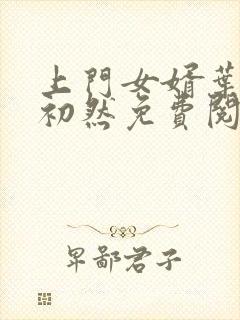 上門女婿葉
初然免費閱
卑鄙君子